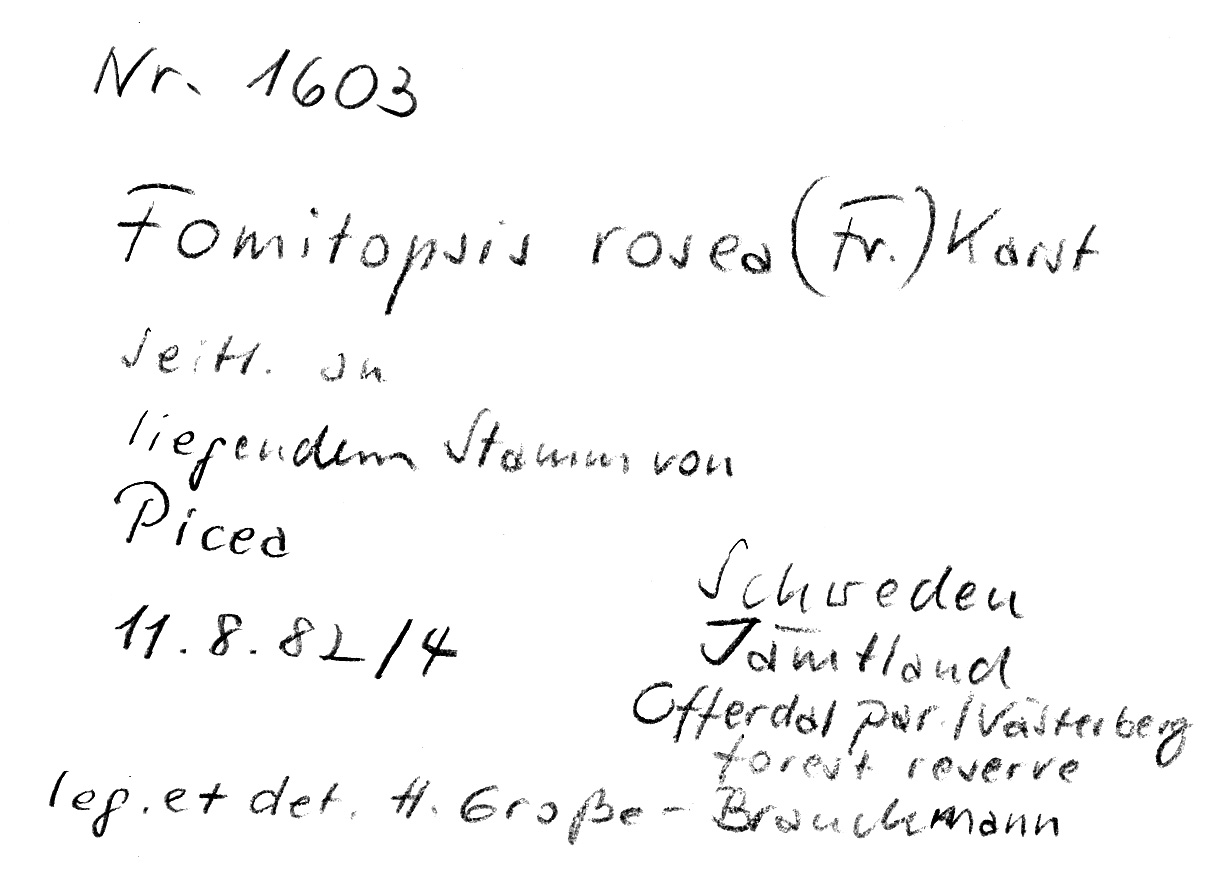 Nr. 1603
Fomitopsis rosea (Fr.) Karst
seitl. an
liegendem Stamm von
Picea
11.8.82/4
Schweden
Jämtland
Offerdal par./Västerberg
forest reserve
leg. et det. H. Große-Brauckmann